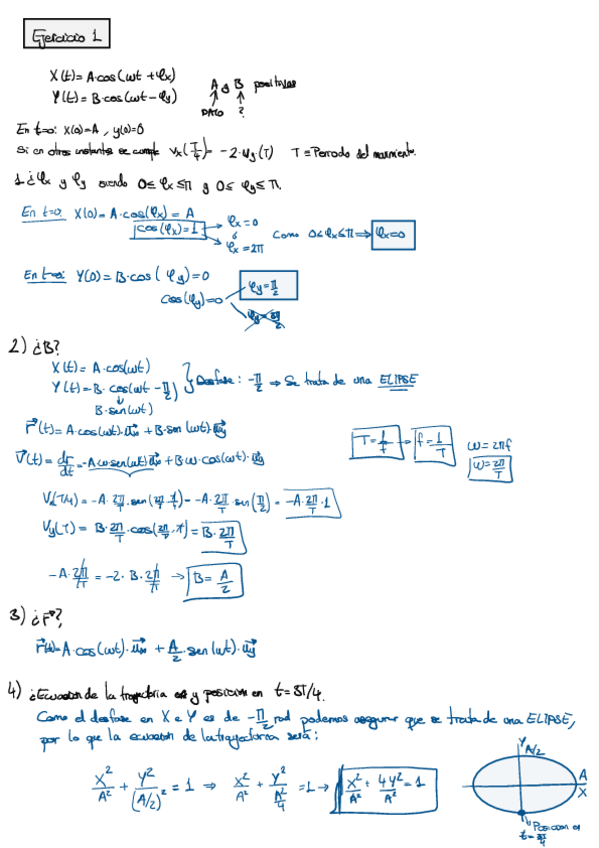 Ejercicio 1
X(t)= A·cos(ωt +φx)
Y(t)= B·cos(ωt-φy)
A y B positivas
DATO ?
En t=0: X(0)=A, y(0)=0
Si en otros instantes se cumple Vx(T/4)= -2·Vy(T) T≡Periodo del movimiento.
1.¿φx y φy siendo 0≤φx≤π y 0≤φy≤π.
En t=0: X(0)=A·cos(φx)=A
cos(φx)=1 φx=0 ó φx=2π Como 0<φx≤π ⇒ φx=0
En t=0: Y(0)=B·cos(φy)=0
cos(φy)=0 φy=π/2
φy=3π/2
2) ¿B?
X(t)= A·cos(ωt)
Y(t)=B·cos(ωt-π/2) } Desfase: -π/2 ⇒ Se trata de una ELIPSE
B·sen(ωt)
r(t)=A·cos(ωt)·ux + B·sen(ωt)·uy
T=1/f → f=1/T ω=2πf
ω=2π/T
V(t)=dr/dt=-Aω·sen(ωt)ux+Bω·cos(ωt)·uy
Vx(T/4)=-A·2π/T·sen(2π/T·T/4)=-A·2π/T·sen(π/2)=-A·2π/T·1
Vy(T)= B·2π/T·cos(2π/T·T)=B·2π/T
-A·2π/T=-2·B·2π/T → B=A/2
3) ¿r?
r(t)=A·cos(ωt)·ux + A/2·sen(ωt)·uy
4) ¿Ecuación de la trayectoria y posicion en t=3T/4.
Como el desfase en X e Y es de -π/2 rad podemos asegurar que se trata de una ELIPSE,
por lo que la ecuacion de la trayectoria será:
X²/A² + Y²/(A/2)² = 1 ⇒ X²/A² + Y²/(A²/4) =1 → X²/A² + 4Y²/A² = 1
Y
A/2
A
X
Posicion en
t=3T/4